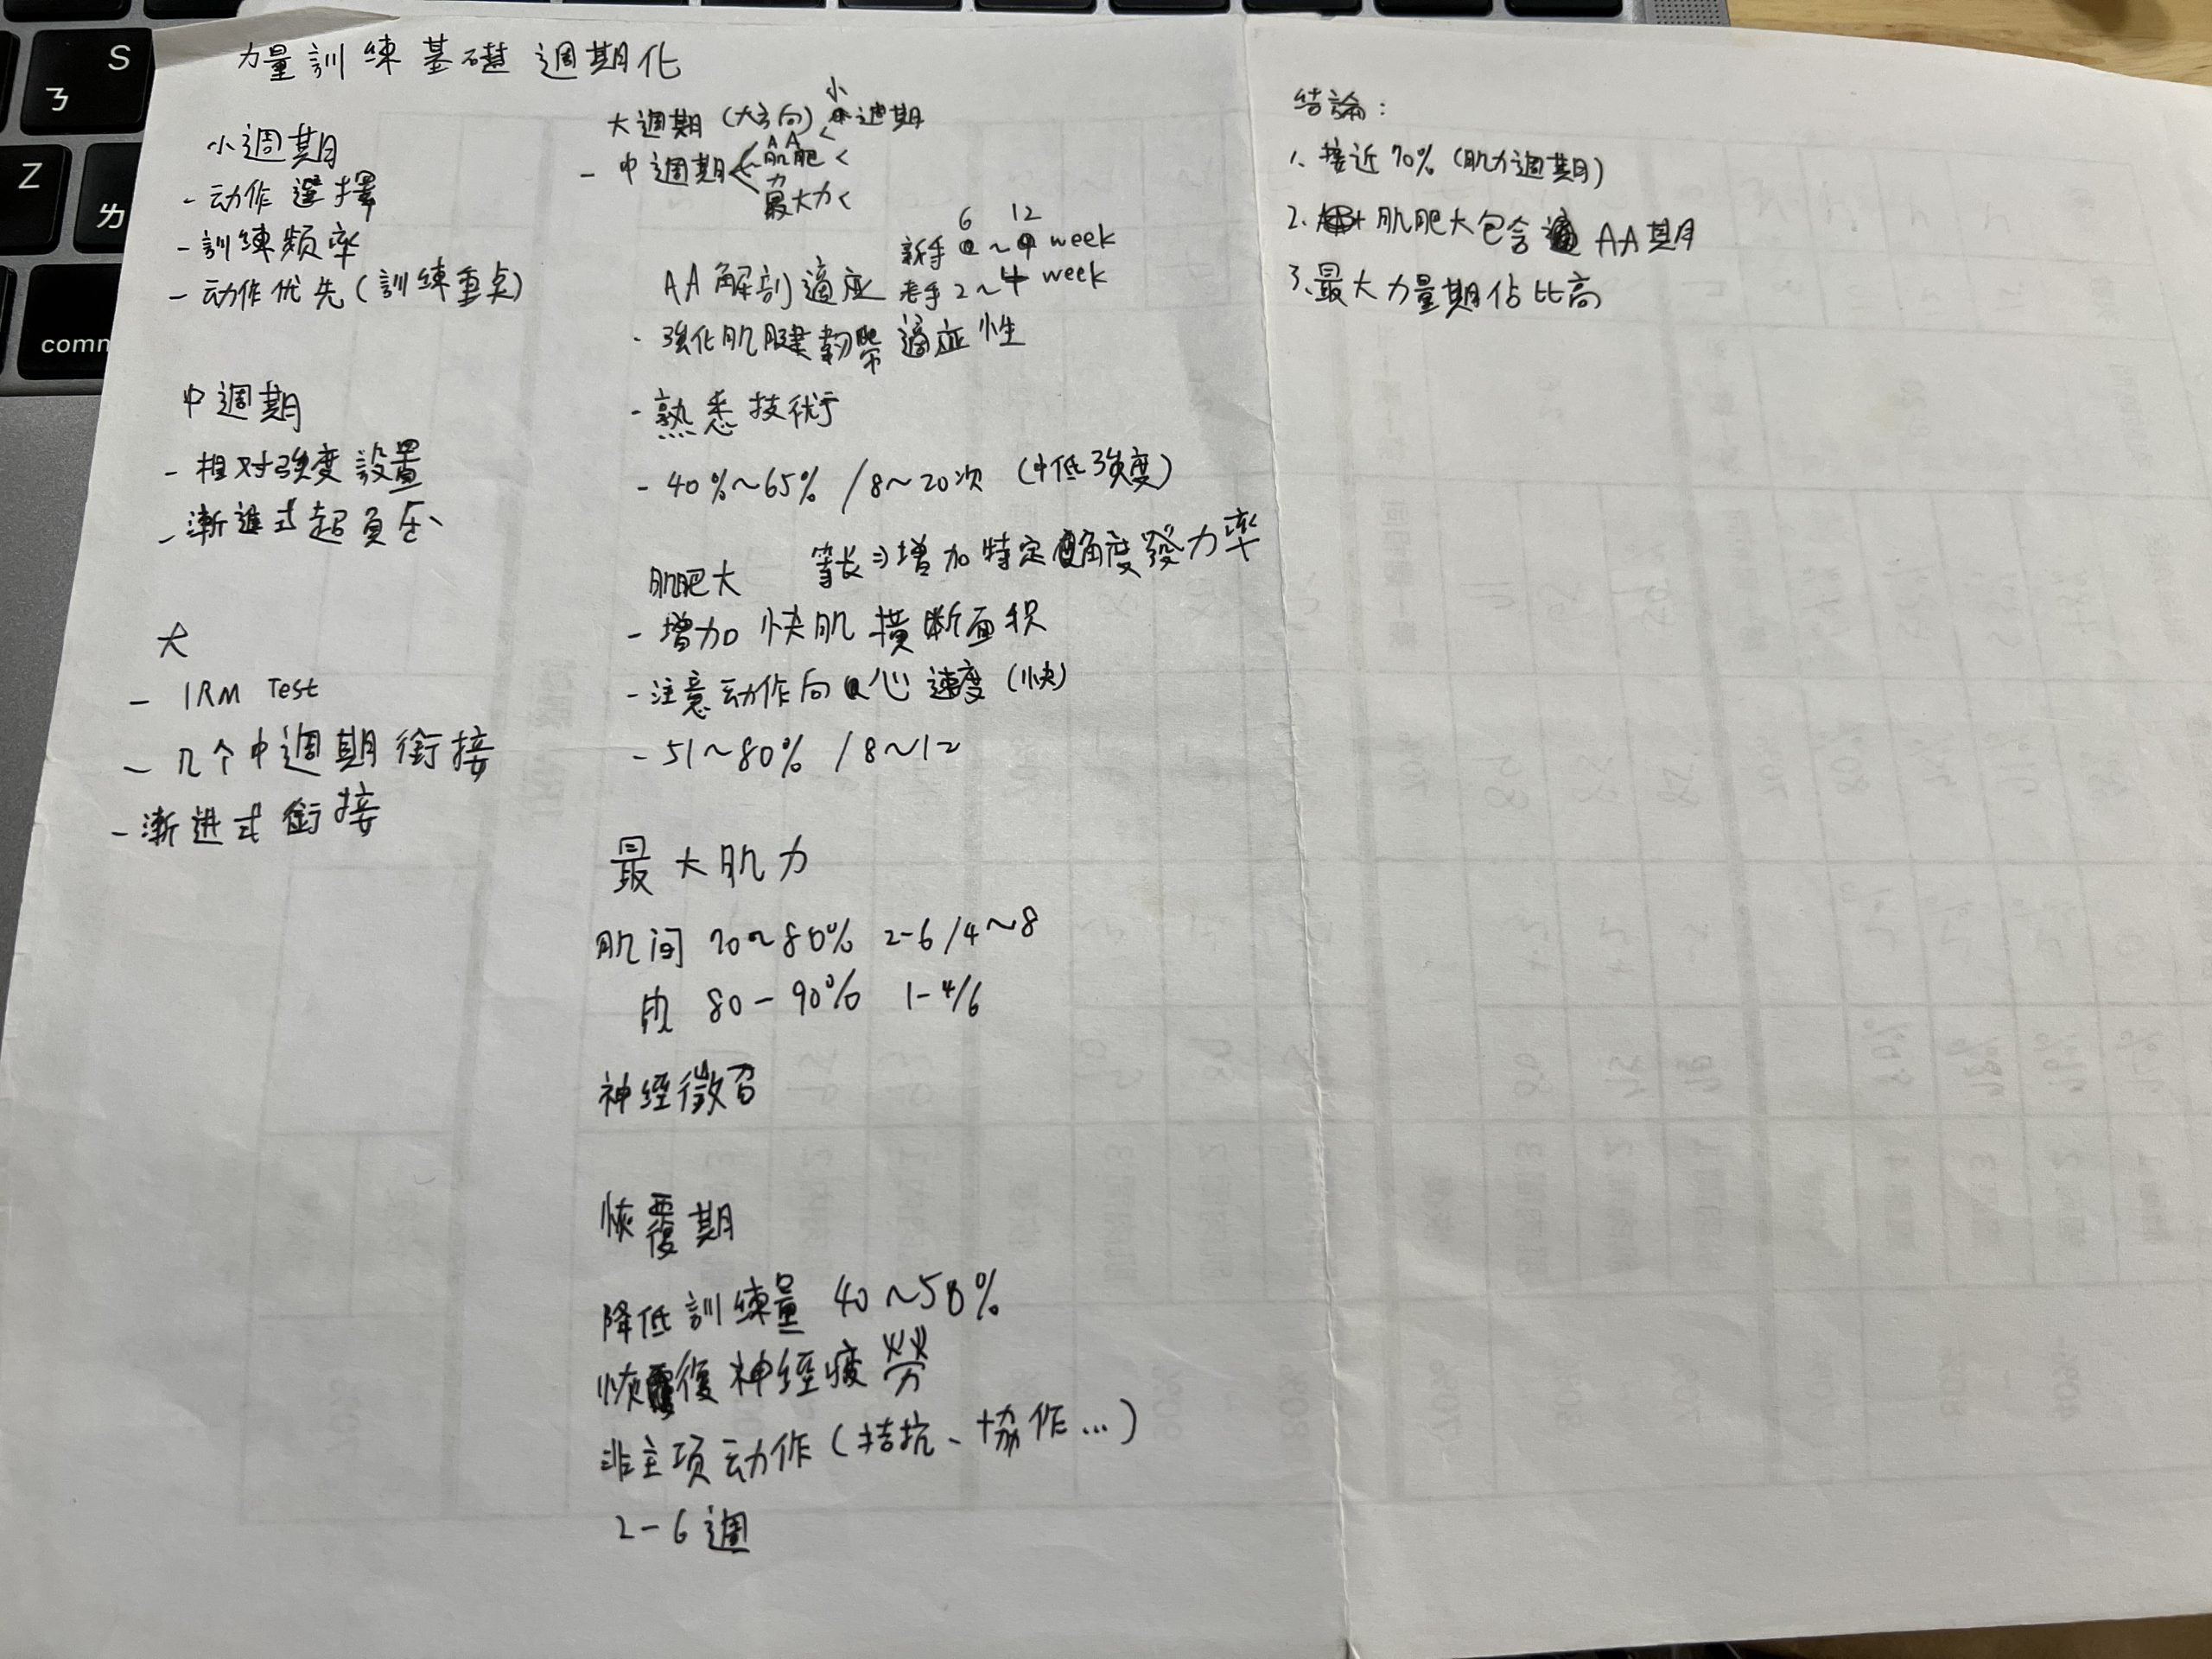 力量訓練基礎週期化
小週期
- 动作選擇
- 訓練頻率
- 动作优先(訓練重点)
中週期
- 相对強度設置
- 漸進式超負压
大
- 1RM Test
- 几个中週期銜接
- 漸进式銜接
大週期(大方向) 小週期
- 中週期< AA <
肌肥 <
最大力 <
AA解剖適应
新手 6~12 week
老手 2~4 week
- 強化肌腱韌帶適应性
- 熟悉技術
- 40%~65% /8~20次 (中低強度)
肌肥大 等長⇒增加特定角度發力率
- 增加快肌橫断面积
- 注意动作向心速度(快)
- 51~80% /8~12
最大肌力
肌间 70~80% 2-6/4~8
肌 80-90% 1-4/6
神經徵召
恢覆期
降低訓練量 40~50%
恢復神經疲勞
非主項动作(拮抗、協作...)
2-6週
結論:
1. 接近70% (肌力週期)
2. 肌肥大包含 AA期
3. 最大力量期佔比高
S
ㄋ
Z
ㄌ
comm